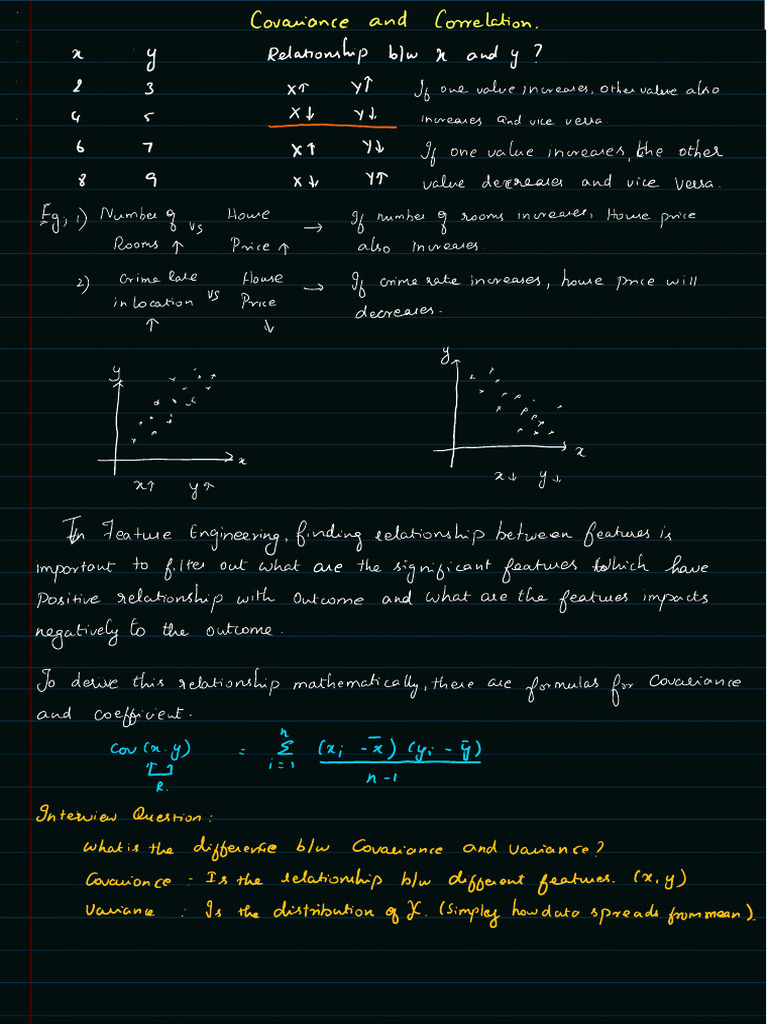 Covariance and Correlation.
x y Relationship b/w x and y ?
2 3 X↑ Y↑ If one value increases, other value also
4 5 X↓ Y↓ increases and vice versa.
6 7 X↑ Y↓ If one value increases, the other
8 9 X↓ Y↑ value decreases and vice versa.
Eg, 1) Number of vs House → If number of rooms increases, House price
Rooms ↑ Price ↑ also increases
2) Crime Rate vs House → If crime rate increases, house price will
in location Price decreases.
↑ ↓
y y
x x
x↑ y↑ x↓ y↓
In Feature Engineering, finding relationship between features is
important to filter out what are the significant features which have
positive relationship with outcome and what are the features impacts
negatively to the outcome.
To derive this relationship mathematically, there are formulas for Covariance
and coefficient.
Cov (x.y) = n Σ i=1 (xi - x̄) (yi - ȳ) / n-1
R.
Interview Question:
What is the difference b/w Covariance and variance?
Covariance : Is the relationship b/w different features. (x,y)
Variance : Is the distribution of X. (Simply how data spreads from mean).